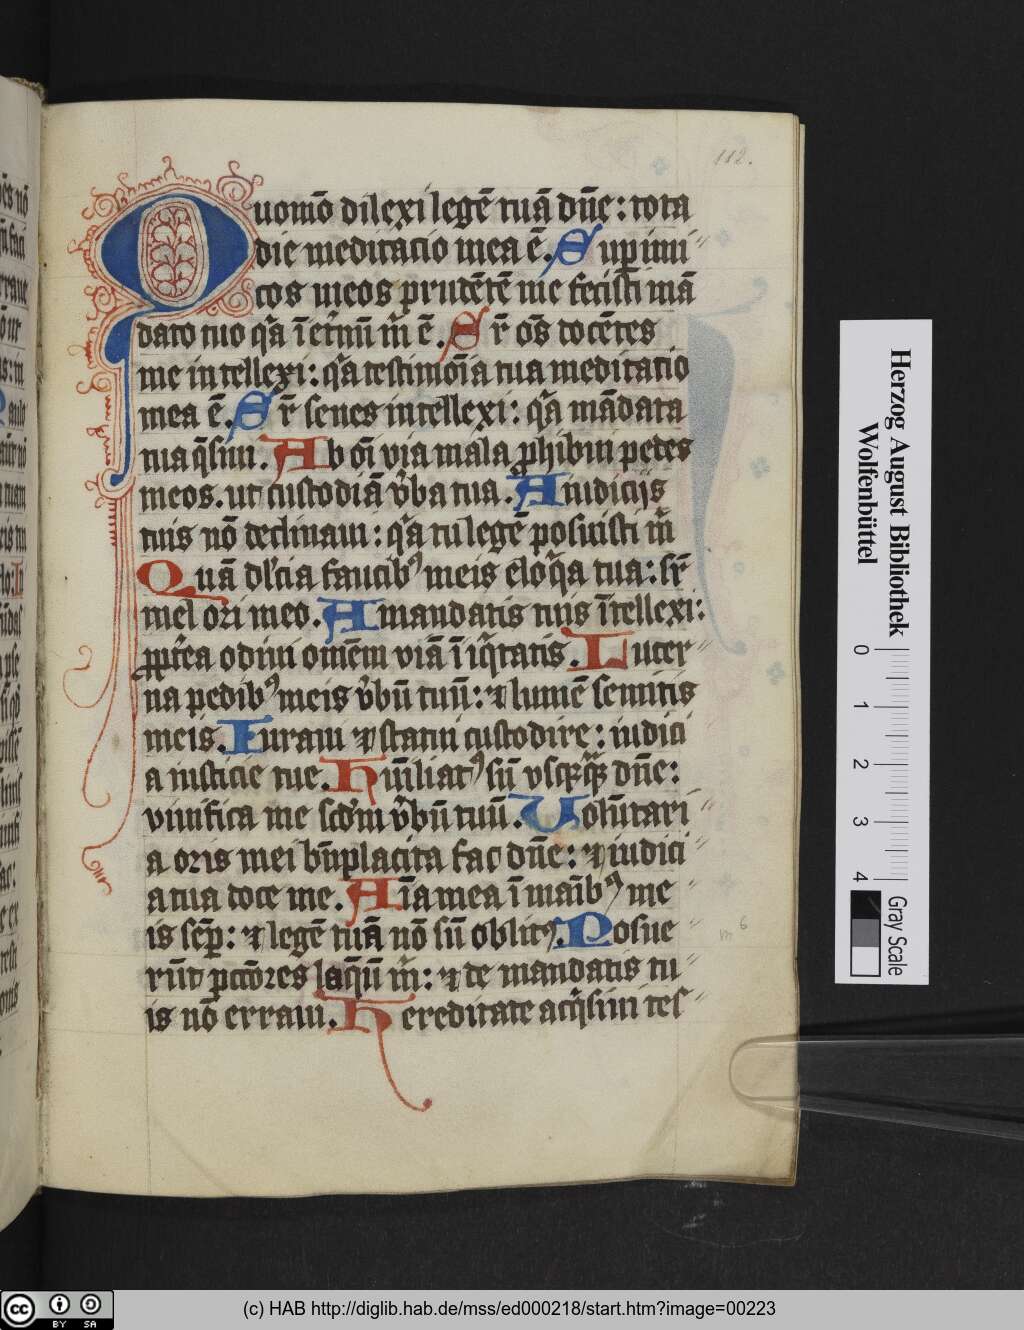 112.
Quomō dilexi legē tuā dn̄e: tota
die meditacio mea ē. Sup inimi
cos meos prudētē me fecisti mā
dato tuo qͣa ī etͤnū m̄ ē. Sr̄ oēs docētes
me intellexi: qͣa testimōia tua meditatio
mea ē. Sr̄ senes intellexi: qͣa mādata
tua q̄siui. Ab oī via mala ꝓhibui pedes
meos. ut custodiā v̄ba tua. A iudicijs
tuis nō declinaui: qͣa tu legē posuisti m̄
Quā dl̄cia faucibꝰ meis eloq̄a tua: sr̄
mel ori meo. A mandatis tuis ītellexi:
ꝓpt̄ea odiui omēm viā īiq̄tatis. Lucer
na pedibꝰ meis v̄bū tuū: ⁊ lumē semitis
meis. Iuraui ⁊ statui custodire: iudici
a iusticie tue. Hūiliatꝰ sū vsqꝫqꝫ dn̄e:
viuifica me scd̄m v̄bū tuū. Volūtari
a oris mei bn̄placita fac dn̄e: ⁊ iudici
a tua doce me. Aīa mea ī manibꝰ me
is sēꝑ: ⁊ legē tuā nō sū oblitꝰ. Posue
rūt pctōres laq̄ū m̄: ⁊ de mandatis tu
is nō erraui. Hereditate acq̄siui tes
Herzog August Bibliothek
Wolfenbüttel
0 1 2 3 4
Gray Scale
cc BY SA
(c) HAB http://diglib.hab.de/mss/ed000218/start.htm?image=00223